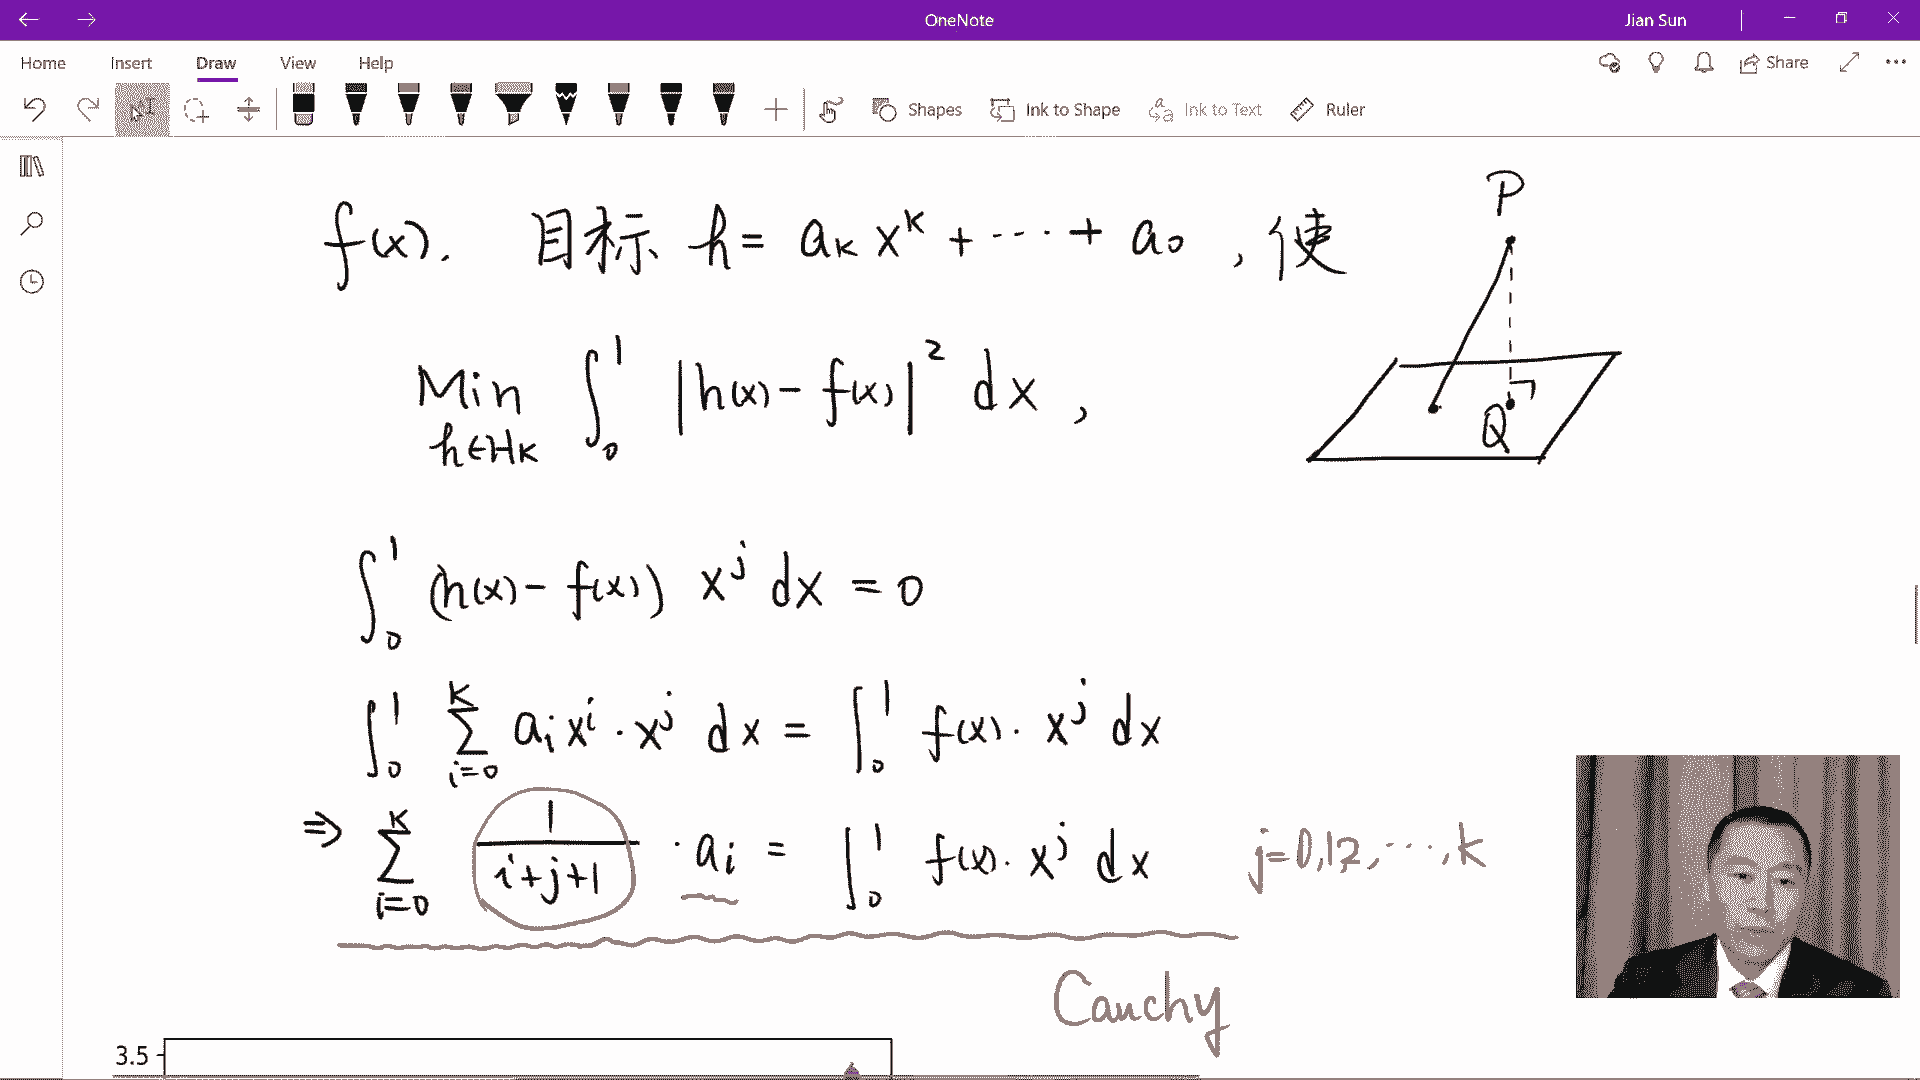 OneNote
Jian Sun
Home Insert Draw View Help
Share
Shapes Ink to Shape Ink to Text Ruler
P
f(x). 目标 h = aₖ xᵏ + ···· + a₀ , 使
Min ∫₀¹ |h(x) - f(x)|² dx ,
h∈Hₖ
Q
∫₀¹ (h(x) - f(x)) xʲ dx = 0
∫₀¹ ∑ᵢ₌₀ᴷ aᵢ xⁱ · xʲ dx = ∫₀¹ f(x) · xʲ dx
⇒ ∑ᵢ₌₀ᴷ 1/(i+j+1) · aᵢ = ∫₀¹ f(x) · xʲ dx j=0,1,2,···,k
Cauchy
3.5